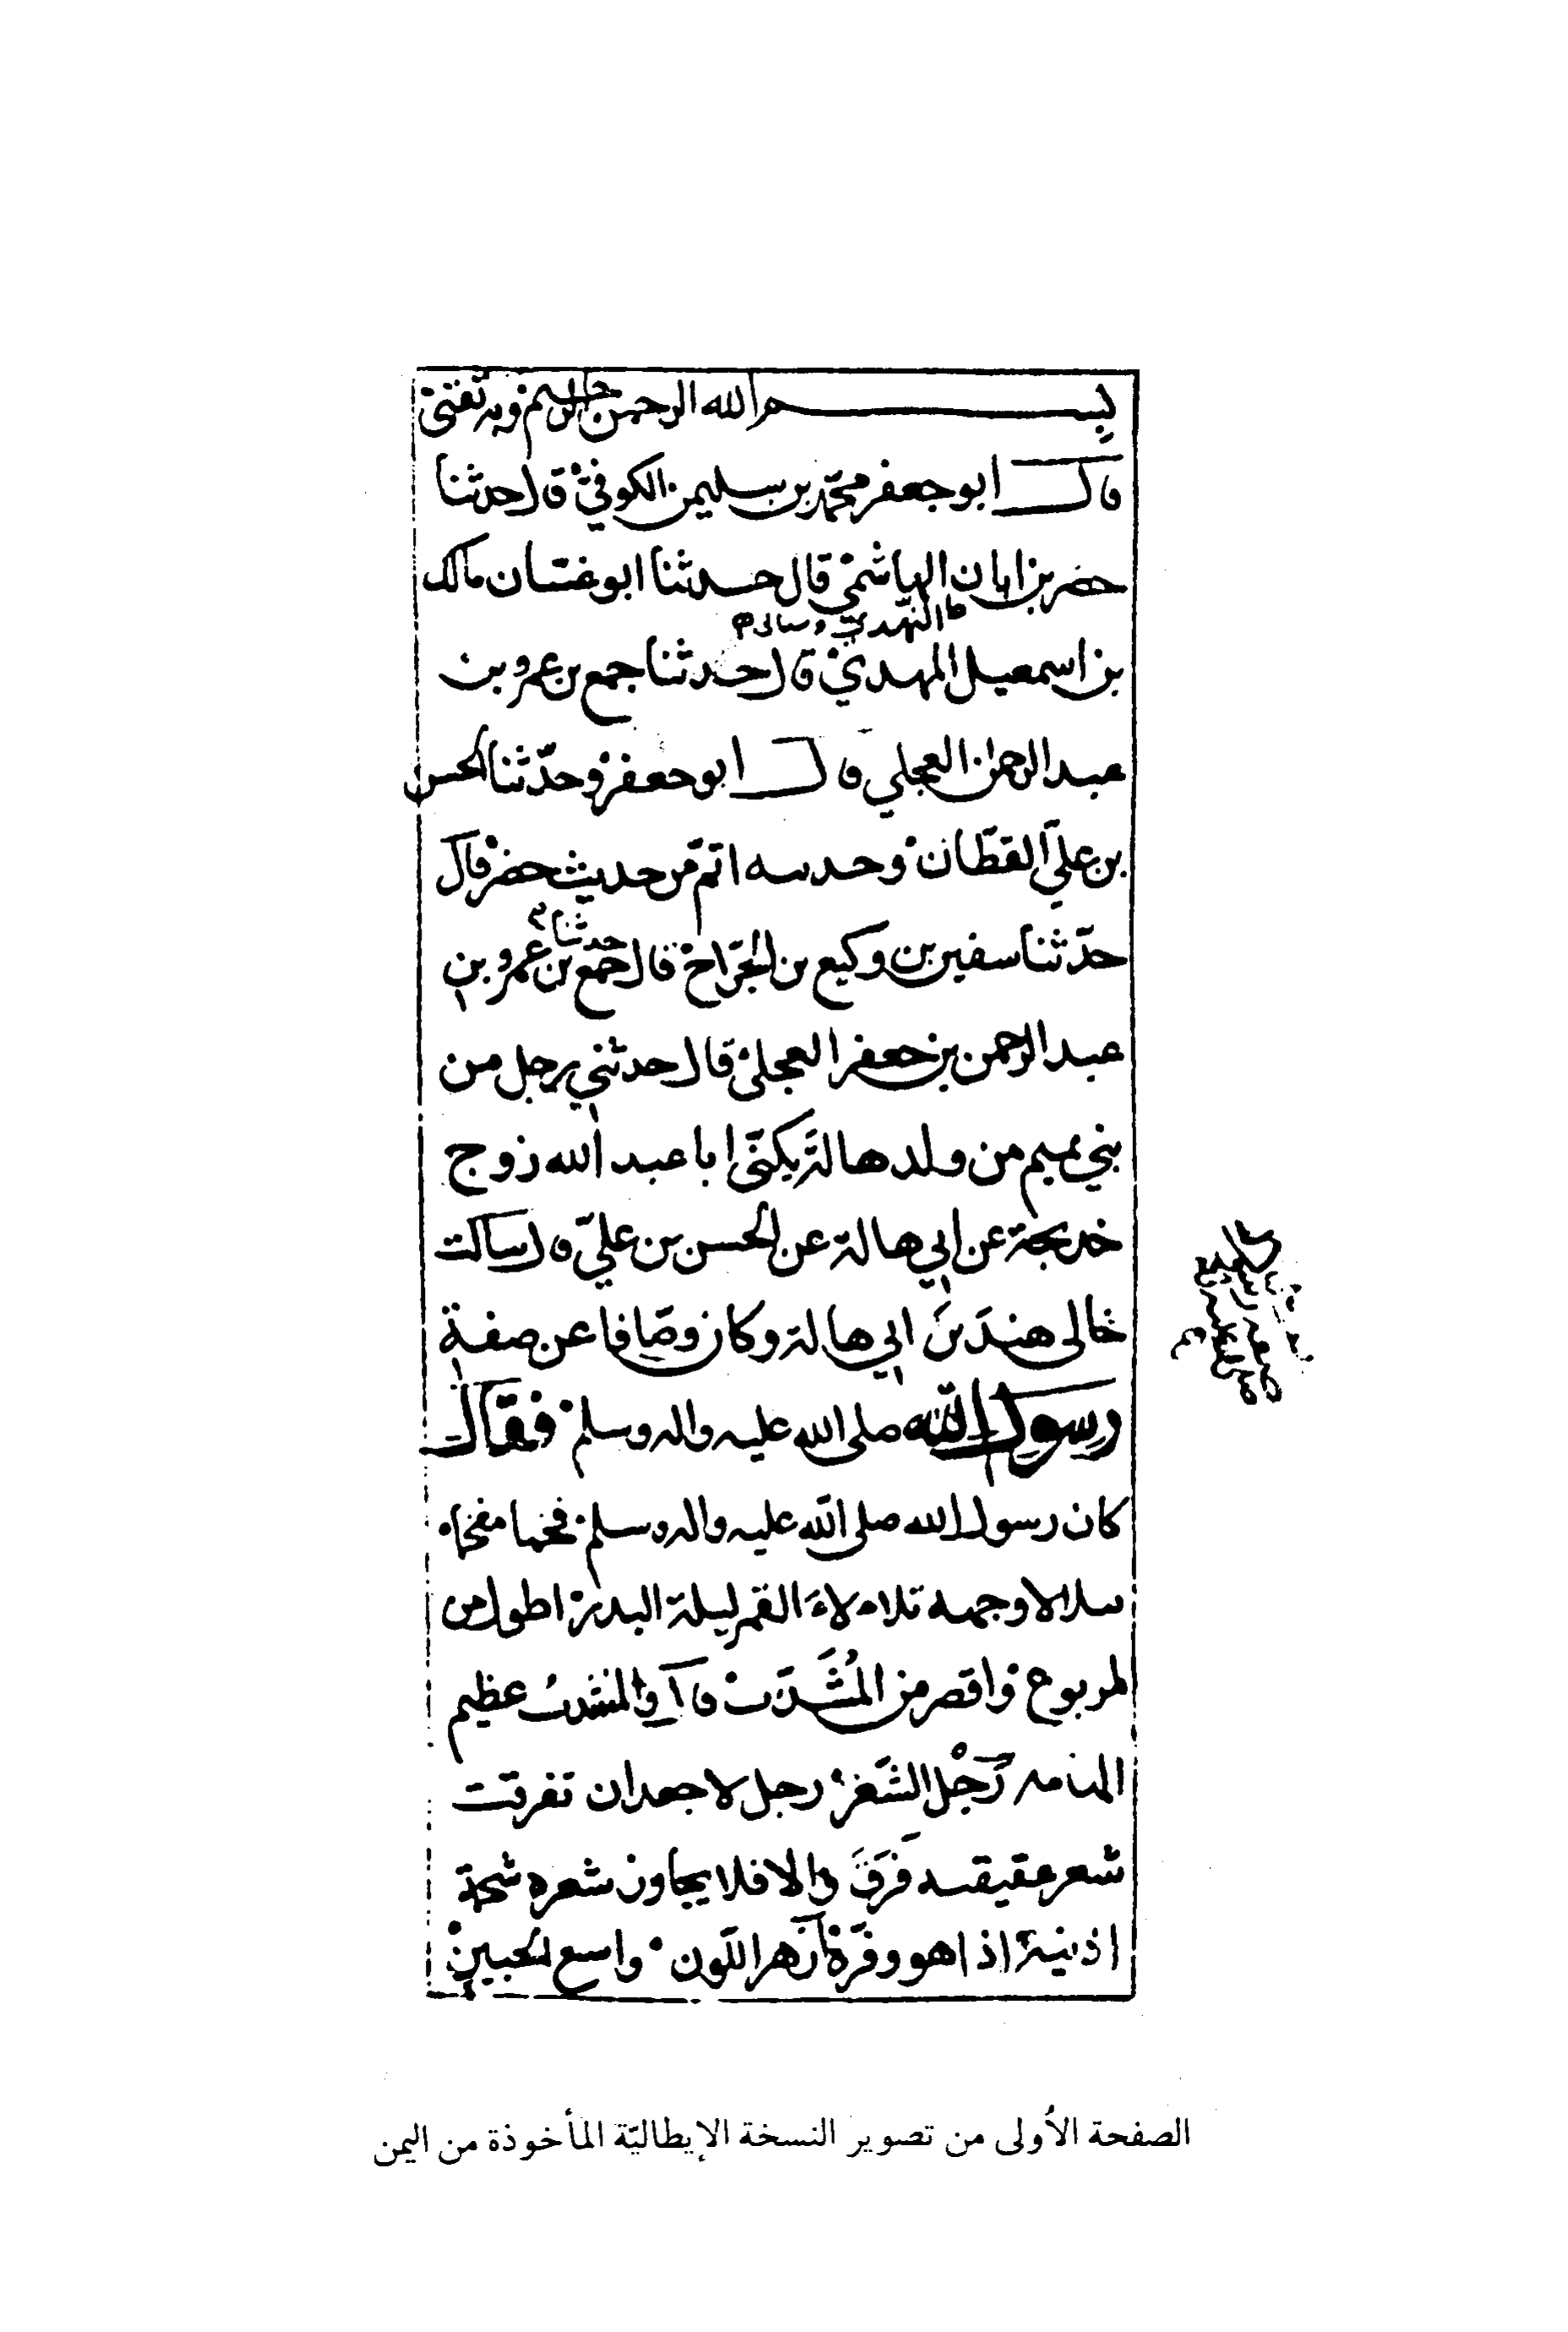 بسم الله الرحمن الرحيم وبه ثقتي
قال ابو جعفر محمد بن سليمن الكوفي قال حدثنا
خضر بن ابان الهاشمي قال حدثنا ابو غسان مالك
النهدي
بن اسمعيل المهدي قال حدثنا جمع بن عمرو بن
عبد الرحمن العجلي قال ابو جعفر وحدّثنا الحسن
بن علي القطان وحدسه اتم من حديث خضر قال
حدثنا
حدّثنا سفين بن وكيع بن الجرّاح قال جمع بن عمرو بن
عبد الرحمن بن جعفر العجلي قال حدثني رجل من
بني تميم من ولد هالة يكنّى ابا عبد الله زوج
خديجة عن ابي هالة عن الحسن بن عليّ قال سالت
خالى هند بن ابي هالة وكان وصّافا عن صفة
رسول الله صلى الله عليه واله وسلم فقال
كان رسول الله صلى الله عليه واله وسلم فخما مفخما
سلالا وجهه تلاء لاء القمر ليلة البدر اطول من
لمربوع واقصر من المُشَذّب قال والمشذب عظيم
الهامه رَجْل الشَعْر رجل لا جعد ان تفرقت
شعر عقيقته فَرَقَ والا فلا يجاوز شعره شحمة
اذنيه اذا هو وفّرة ازهر اللّون واسع الجبين
الصفحة الأولى من تصوير النسخة الإيطاليّة المأخوذة من اليمن